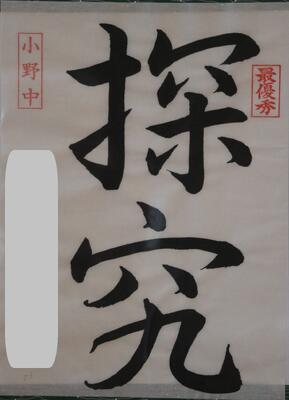 最優秀
探究
小野中